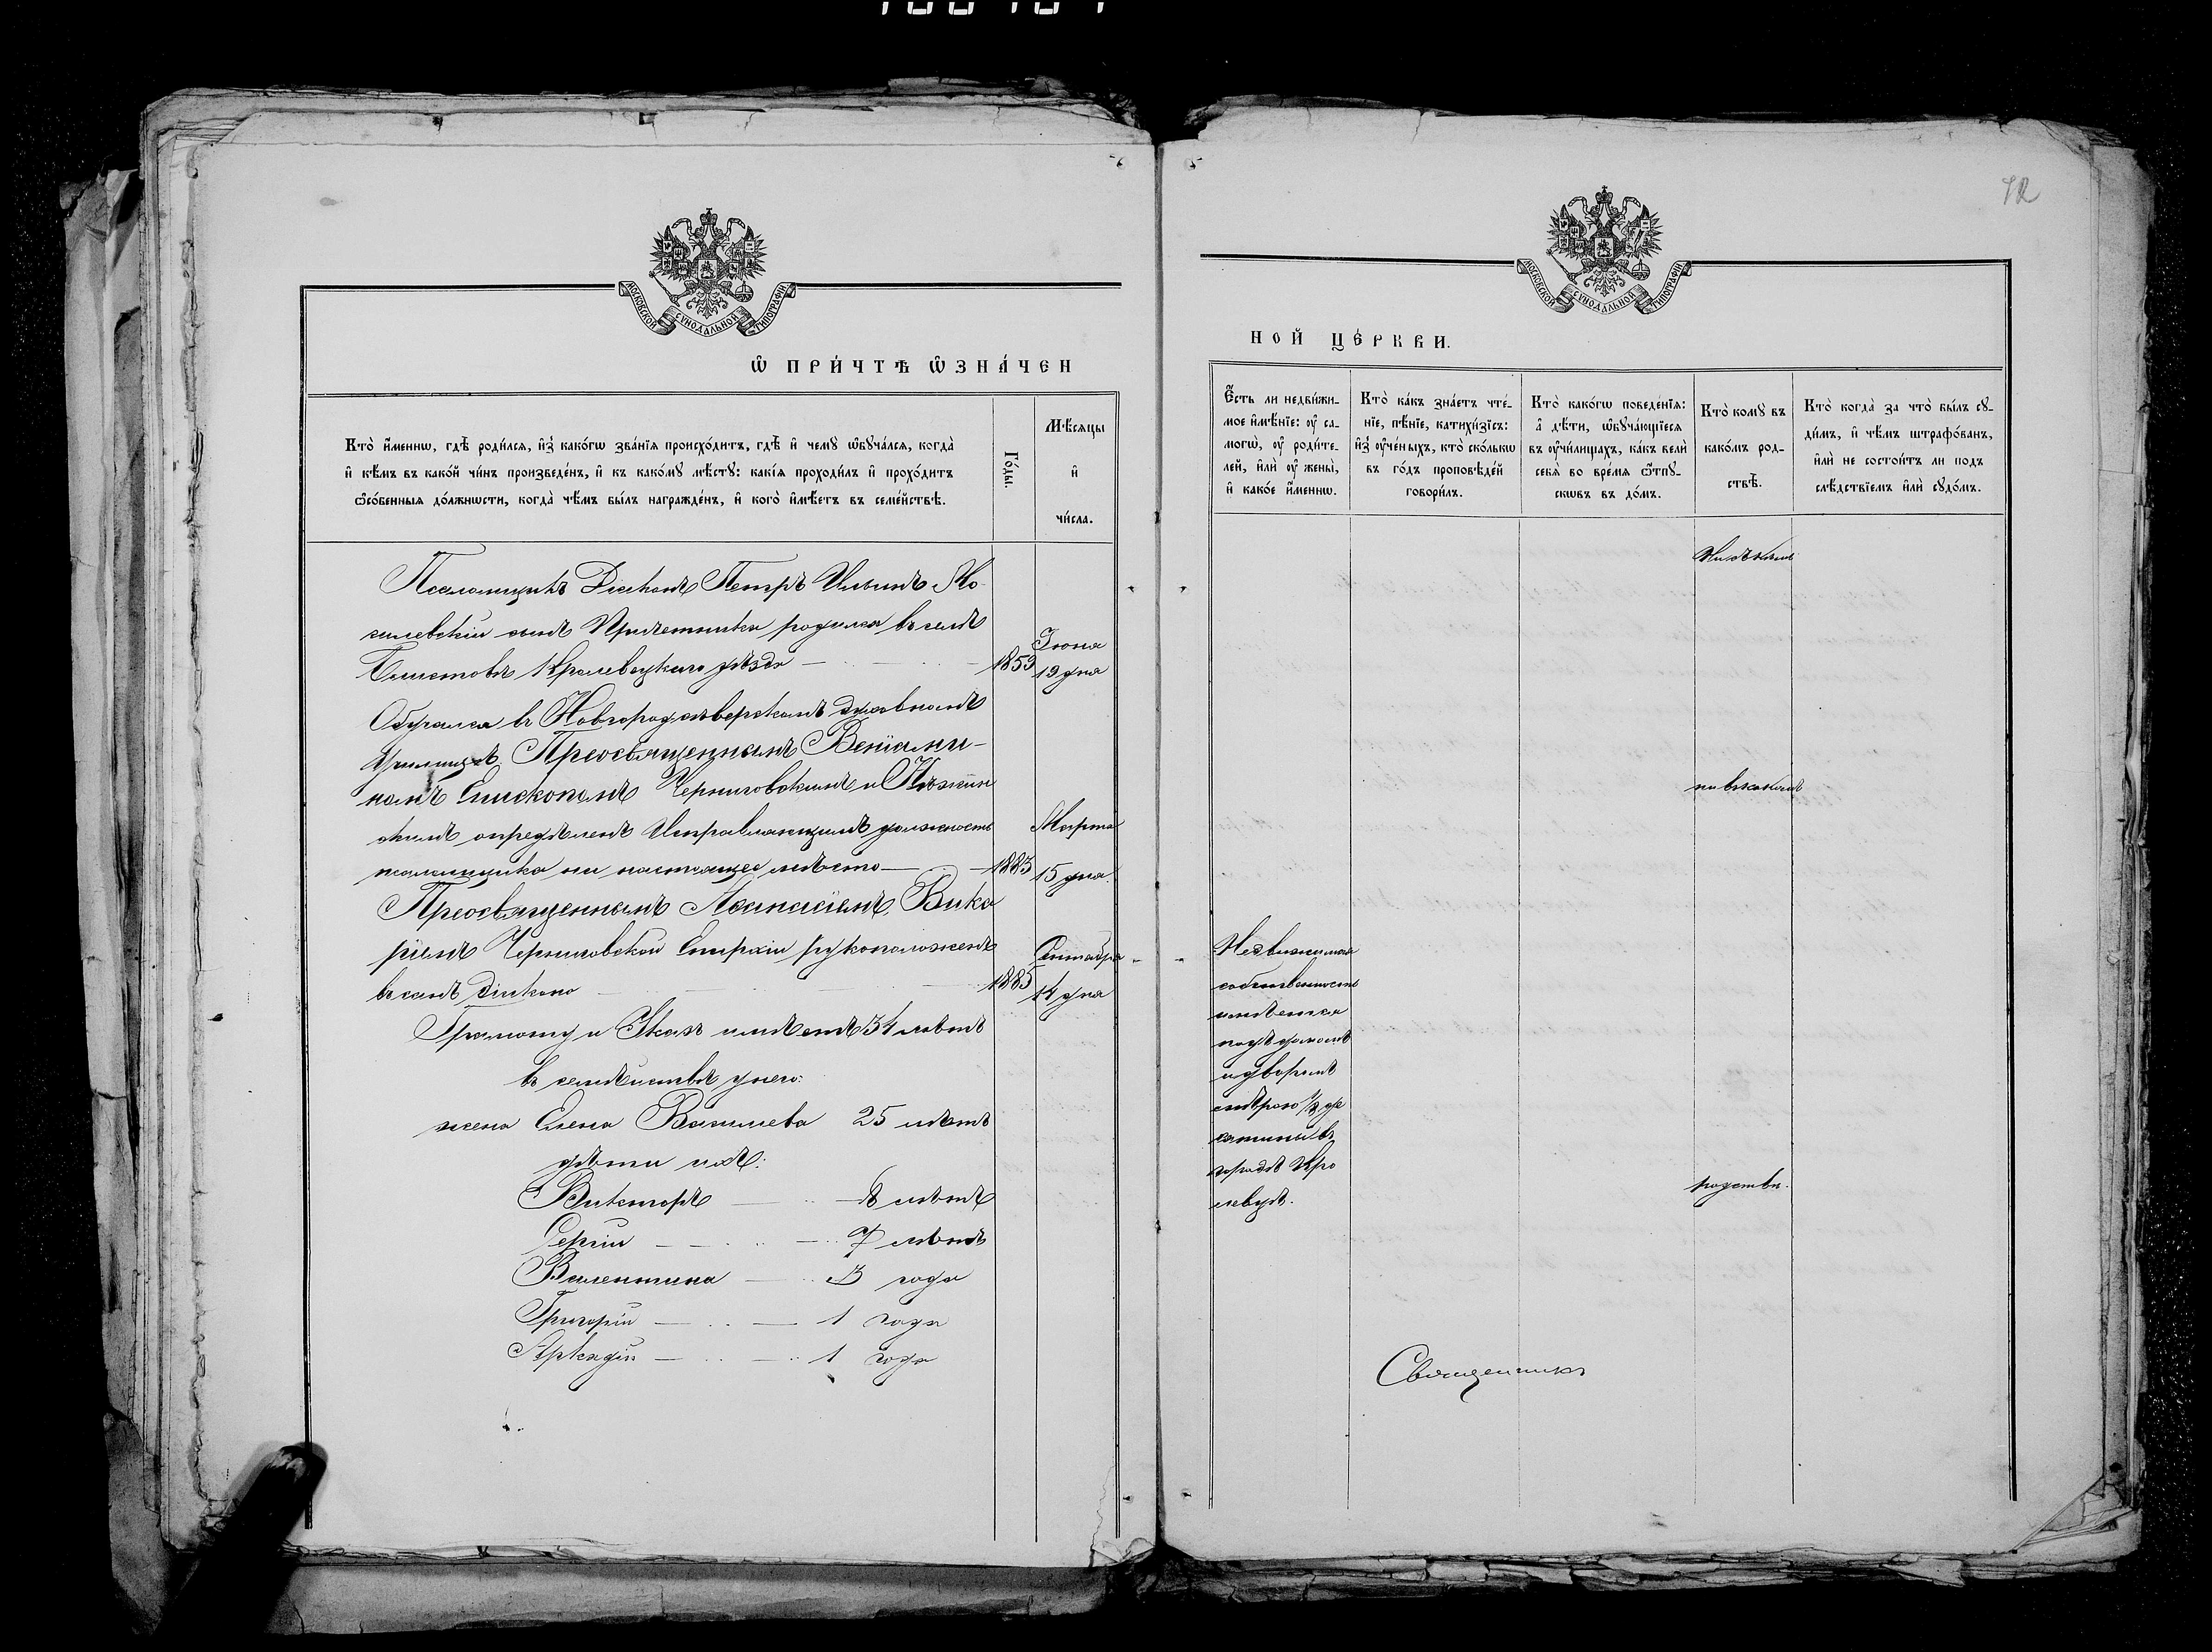 МОСКОВСКОЙ СѴНОДАЛЬНОЙ ТИПОГРАФІИ
Ѡ ПРИ́ЧТѢ ѠЗНА́ЧЕН
Кто̀ и҆́меннѡ, гдѣ̀ роди́лсѧ, и҆з̾ како́гѡ зва́нїѧ происхо́дитъ, гдѣ̀ и҆ чемꙋ̀ ѡ҆бꙋча́лсѧ, когда̀
и҆ кѣ́мъ въ како́й чи́нъ произведе́нъ, и҆ къ како́мꙋ мѣ́стꙋ: какі̑ѧ проходи́лъ и҆ прохо́дитъ
ѻ҆со́бенныѧ до́лжнѡсти, когда̀ чѣ́мъ бы́лъ награжде́нъ, и҆ кого̀ и҆мѣ́етъ въ семе́йствѣ.
Го́ды.
Мѣ́сѧцы
и҆
чи́сла.
Псаломщикъ Діаконъ Петръ Ильинъ Мо-
гилевскій сынъ Причетника родился въ селѣ
Кролевецкаго уѣзда — 1853 Іюня 19 дня
Обучался въ Новгородсѣверскомъ духовномъ
училищѣ. Преосвященнымъ Веніами-
номъ Епископомъ Черниговскимъ и Нѣжин
скимъ опредѣленъ Исправляющимъ должность
псаломщика на настоящее мѣсто — 1883 Марта 15 дня.
Преосвященнымъ Аѳанасіемъ, Вика
ріемъ Черниговской Епархіи рукоположенъ
въ санъ діакона 1885 Сентября 14 дня
Грамоту и Указъ имѣетъ 34 лѣтъ
въ семействѣ у него:
жена Елена Васильева 25 лѣтъ
дѣти ихъ:
Викторъ — 8 лѣтъ
Сергій — 7 лѣтъ
Валентина — 3 года
Григорій — 1 года
Аркадій — 1 года
12
МОСКОВСКОЙ СѴНОДАЛЬНОЙ ТИПОГРАФІИ
НОЙ ЦЕ́РКВИ.
Е҆́сть ли недви́жи-
мое и҆мѣ́нїе: ᲂу҆ са-
могѡ̀, ᲂу҆ роди́те-
лей, и҆лѝ ᲂу҆ жены̀,
и҆ како́е и҆́меннѡ.
Кто̀ ка́къ зна́етъ чте́-
нїе, пѣ́нїе, катихи́зїсъ:
и҆з̾ ᲂу҆че́ныхъ, кто̀ ско́лькѡ
въ го́дъ проповѣ́дей
говори́лъ.
Кто̀ како́гѡ поведе́нїѧ:
а҆ дѣ́ти, ѡ҆бꙋча́ющїесѧ
въ ᲂу҆чи́лищахъ, ка́къ велѝ
себѧ̀ во вре́мѧ ѿпꙋ-
скѡвъ въ до́мъ.
Кто̀ комꙋ̀ въ
како́мъ род-
ствѣ̀.
Кто̀ когда̀ за что̀ бы́лъ сꙋ-
ди́мъ, и҆ чѣ́мъ штрафо́ванъ,
и҆лѝ не состои́тъ ли под̾
слѣ́дствїемъ и҆лѝ сꙋдо́мъ.
Ни съ кѣмъ
ни въ какомъ
родствѣ.
Недвижимая
собственность
имѣется
подъ домомъ
и дворомъ
мѣрою 1/3 де
сятины въ
городѣ Кро
левцѣ.
Священникъ